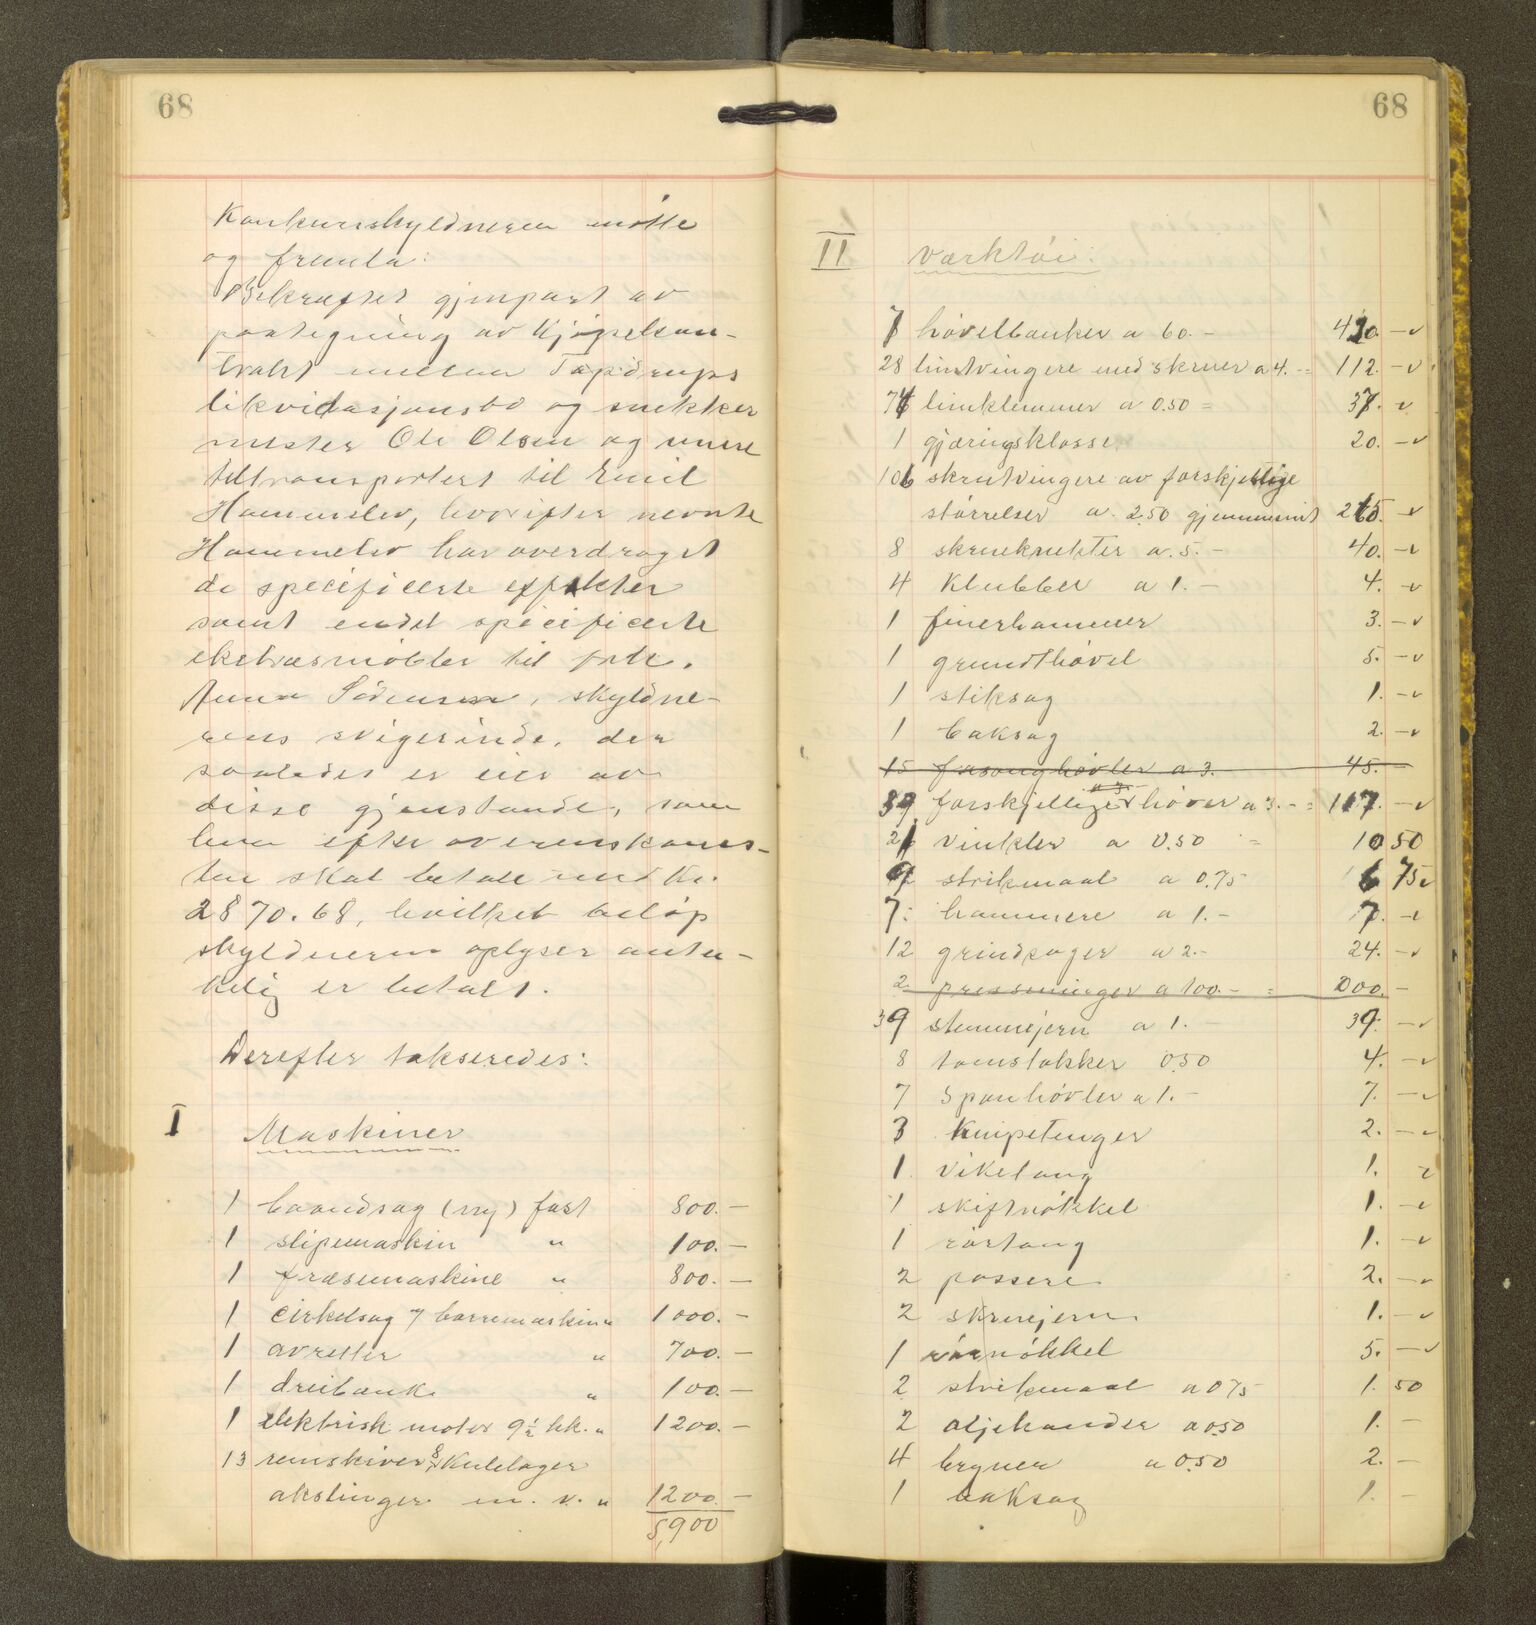 68
Konkursskyldneren møtte
og fremla:
Bekræftet gjenpart av
paategning av kjøpekon-
trakt mellem Tapdrups
likvidasjonsbo og snekker
mester Ole Olsen og senere
tiltransportert til Emil
Hammelev, hvorefter nevnte
Hammelev har overdraget
de specificerte effekter
samt endel specificerte
eketræsmøbler til frk.
Anna Sørensen, skyldne-
rens svigerinde, der
saaledes er eier av
disse gjenstande, som
hun efter overenskoms-
ten skal betale med Kr.
2870.68, hvilket beløp
skyldneren oplyser anten-
kelig er betalt.
Derefter takseredes:
I Maskiner
1 baandsag (ny) fast 800.-
1 slipemaskin " 100.-
1 fræsemaskine " 800.-
1 cirkelsag og borremaskin " 1000.-
1 avretter " 700.-
1 dreibank " 100.-
1 elektrisk motor 9½ hk. " 1200.-
13 remskiver, 8 kulelager
akslinger m. v. " 1200.-
5,900
68
II Værktøi:
7 høvelbenker a 60.- 420.-
28 limtvingere med skruer a 4.- = 112.-
74 limklemmer a 0.50 = 37.-
1 gjæringsklosse 20.-
106 skrutvingere av forskjellige
størrelser a 2.50 gjennemsnit 265.-
8 skrueknekter a 5.- 40.-
4 klubber a 1.- 4.-
1 finerhammer 3.-
1 grundthøvel 5.-
1 stiksag 1.-
1 baksag 2.-
15 fasonghøvler a 3. 45.-
39 forskjellige høvler a 3.- = 117.-
21 vinkler a 0.50 = 10 50
9 strikmaal a 0.75 6 75
7 hammere a 1.- 7.-
12 grindsager a 2.- 24.-
2 pressninger a 100.- = 200.-
39 stemmejern a 1.- 39.-
8 tomstokker 0.50 4.-
7 Spanhøvler a 1.- 7.-
3 Knipetenger 2.-
1 Viketang 1.
1 skiftnøkkel 1.-
1 rørtang 1.-
2 passere 2.-
2 skruejern 1.-
1 rørnøkkel 5.-
2 strikmaal a 0.75 1. 50
2 oljekander a 0.50 1.-
4 bryner a 0.50 2.-
1 baksag 1.-